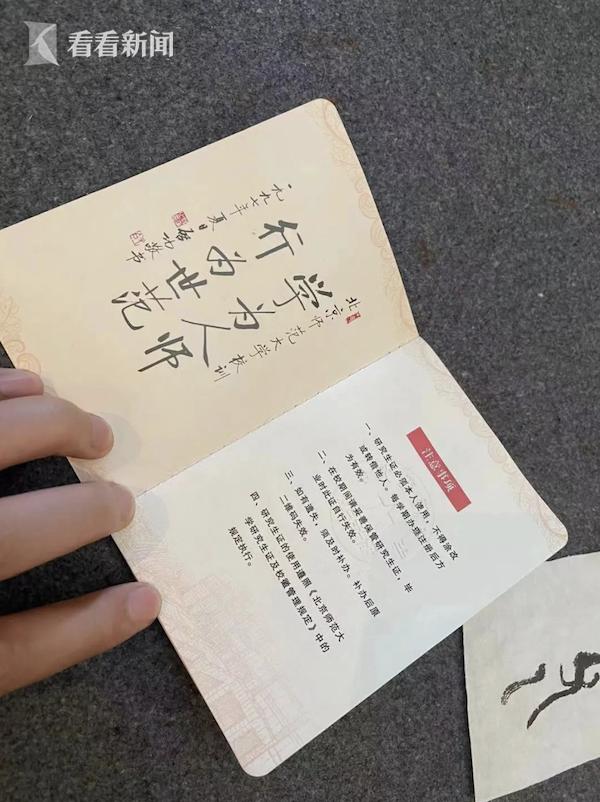 看看新闻
北京师范大学校训
学为人师
行为世范
一九九七年夏日
启功敬书
注意事项
一、研究生证必须本人使用，不得涂改
或转借他人。每学期办理注册后方
为有效。
二、在校期间请妥善保管研究生证，毕
业时此证自行失效。
三、如有遗失，须及时补办。补办后原
二维码失效。
四、研究生证的使用遵照《北京师范大
学研究生证及校徽管理规定》中的
规定执行。